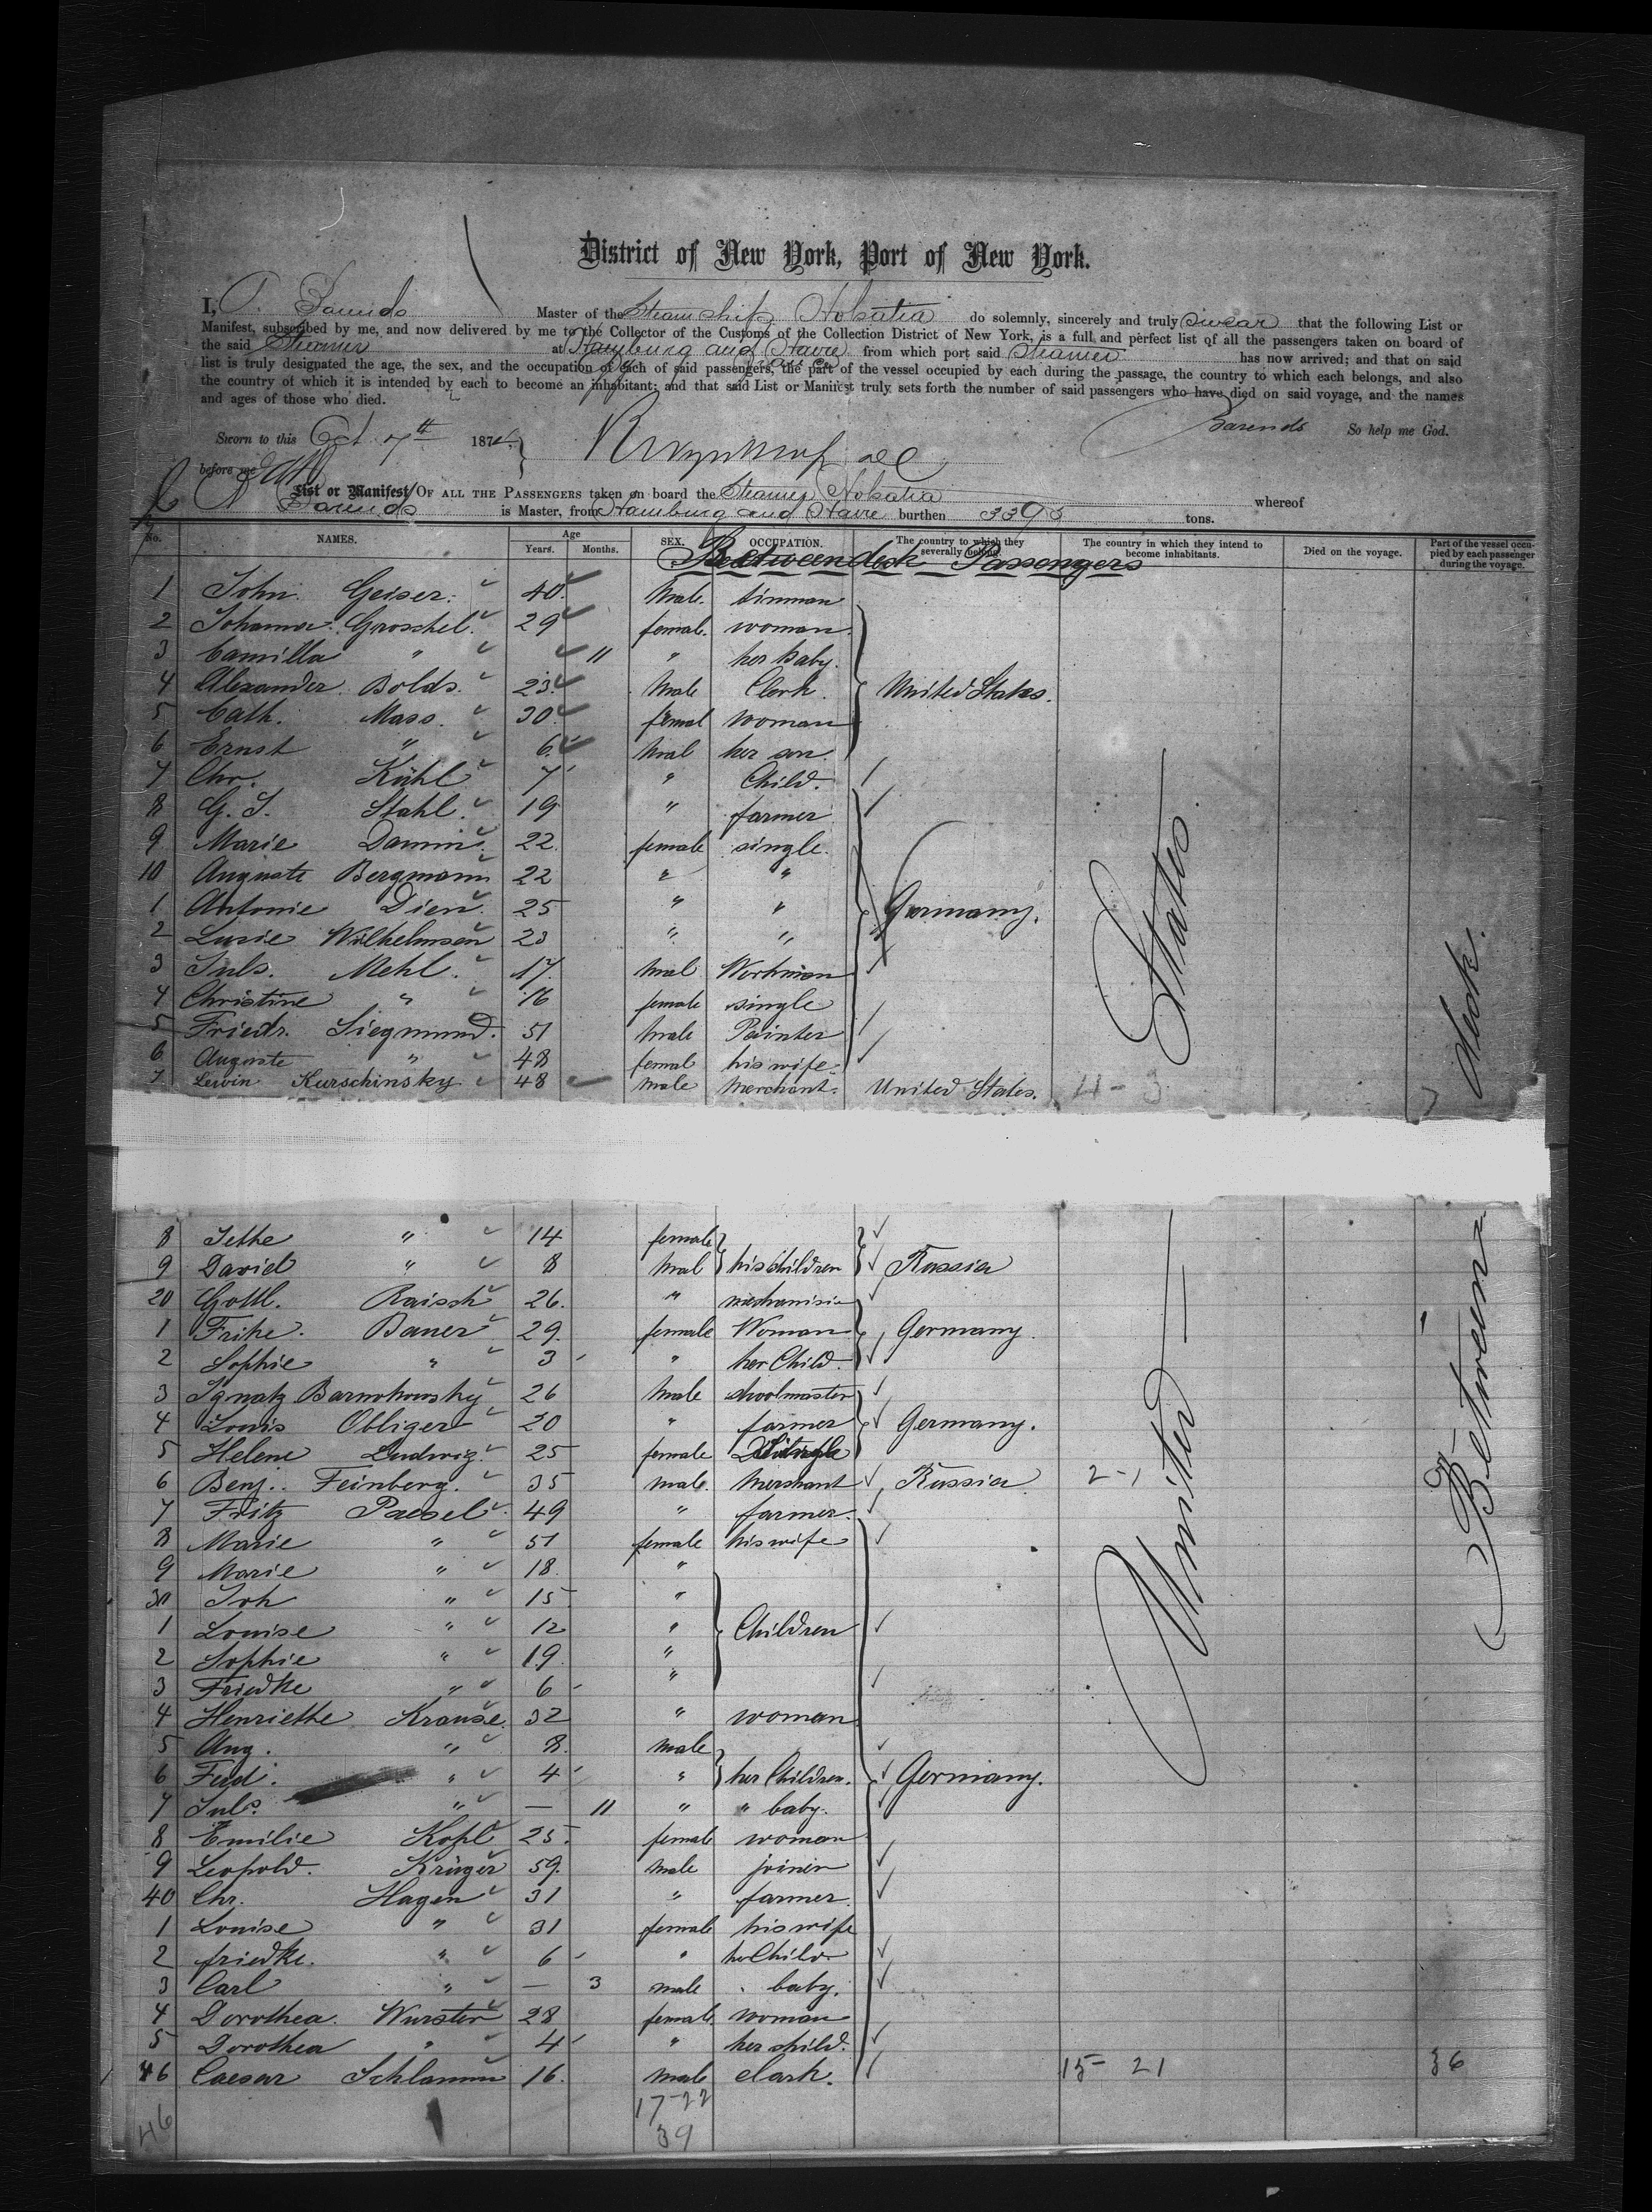 District of New York, Port of New York.
I, P. Barends Master of the Steamship Holsatia do solemnly, sincerely and truly swear that the following List or
Manifest, subscribed by me, and now delivered by me to the Collector of the Customs of the Collection District of New York, is a full and perfect list of all the passengers taken on board of
the said Steamer at Hamburg and Havre from which port said Steamer has now arrived; and that on said
list is truly designated the age, the sex, and the occupation of each of said passengers, the part of the vessel occupied by each during the passage, the country to which each belongs, and also
the country of which it is intended by each to become an inhabitant; and that said List or Manifest truly sets forth the number of said passengers who have died on said voyage, and the names
and ages of those who died.
Barends So help me God.
Sworn to this Oct 7th 187
before me
List or Manifest OF ALL THE PASSENGERS taken on board the Steamer Holsatia whereof
Barends is Master, from Hamburg and Havre burthen 3393 tons.
No. NAMES. Age Years. Months. SEX. OCCUPATION. The country to which they severally belong. The country in which they intend to become inhabitants. Died on the voyage. Part of the vessel occupied by each passenger during the voyage.
Betweendeck Passengers
1 John Geiser. 40. Male. tinman
2 Johanna Groschel. 29 female. woman.
3 Camilla " 11 " her baby.
4 Alexander Bolds. 23. Male Clerk. United States.
5 Cath. Mass. 30 femal woman
6 Ernst " 6. Mal her son.
7 Chr. Kühl 7 " Child.
8 G. J. Stahl. 19 " farmer
9 Marie Damm. 22. female single.
10 Auguste Bergmann 22 " "
1 Antonie Dien. 25 " " Germany.
2 Lucie Wilhelmsen 23 " "
3 Juls. Mehl. 17. Mal Workman
4 Christine " 16 female single
5 Friedr. Siegmund. 51 Male Painter
6 Auguste " 48 femal his wife.
7 Lewin Kurschinsky 48 Male Merchant. United States. 4-3
8 Jethe " 14 female
9 David " 8 Mal his children Russia
20 Gottl. Raisch 26. "
1 Frike. Bauer 29. female Woman Germany
2 Sophie " 3 " her Child.
3 Ignatz Barnokowsky 26 Male schoolmaster
4 Louis Obliger 20 " farmer Germany.
5 Helene Ludwig. 25 female
6 Benj. Feinberg. 35 male. Merchant Russia 2-1
7 Fritz Paesel 49 " farmer.
8 Marie " 51 female his wife
9 Marie " 18. "
30 Joh " 15 "
1 Louise " 12 " Children
2 Sophie " 19. "
3 Friedke " 6 "
4 Henriette Krause. 32 " woman
5 Aug. " 8. male
6 Ferd. " 4 " her Children. Germany.
7 Juls. " — 11 " " baby.
8 Emilie Kopl 25. female woman
9 Leopold. Krüger 59. male joiner
40 Chr. Hagen 31 " farmer.
1 Louise " 31 female his wife
2 friedke. " 6 " her Child
3 Carl " — 3 male " baby.
4 Dorothea. Wurster 28 female woman
5 Dorothea " 4 " her child.
46 Caesar Schlamm 16. male clark. 15- 21 36
46 17-22
39
United States
Between deck.